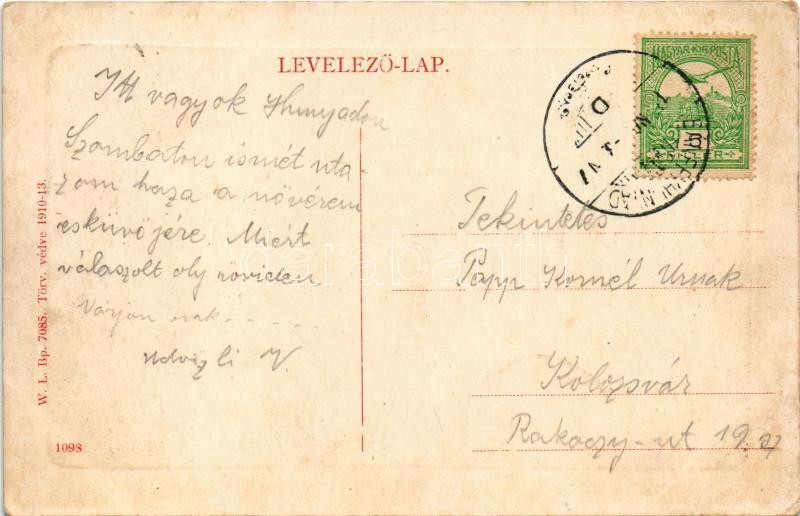 LEVELEZŐ-LAP.
Itt vagyok Hunyadon
Szombaton ismét uta-
zom haza a nővérem
esküvőjére. Miért
válaszolt oly röviden
Várjon csak - - - - -
üdvözli V.
Tekintetes
Papp Kornél Urnak
Kolozsvár
Rakoczy-ut 19.
MAGYAR KIR. POSTA
W. L. Bp. 7085. Törv. védve 1910-13.
1098
darabanth